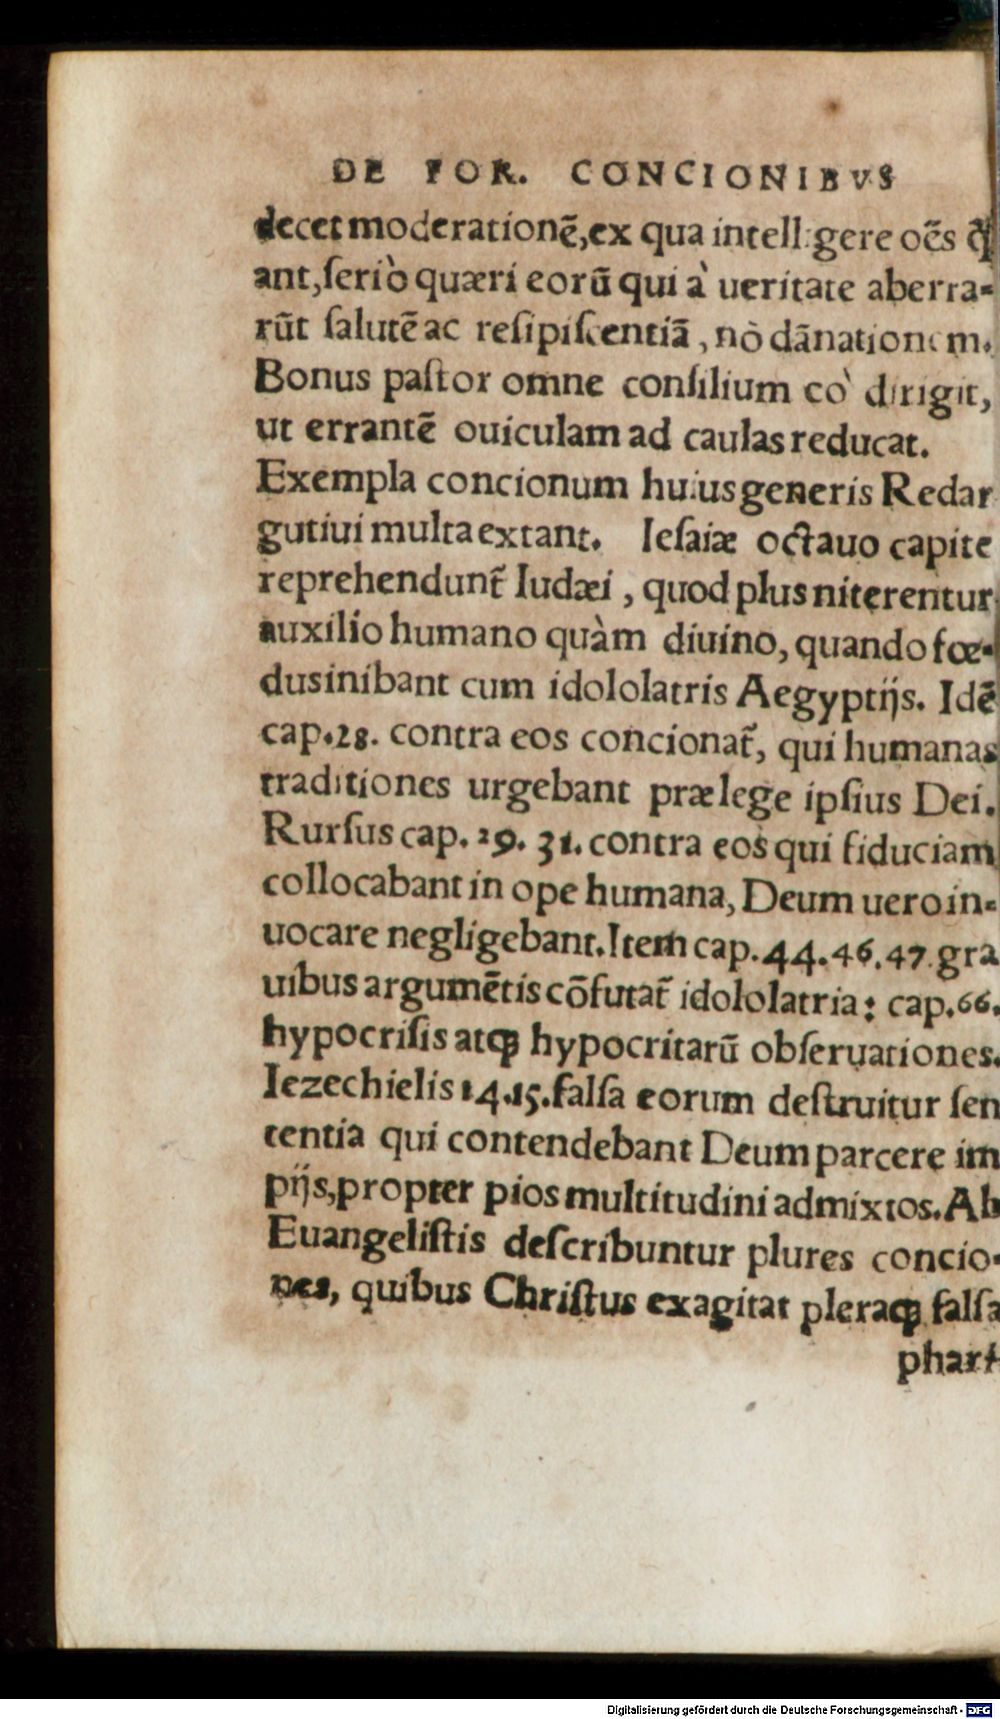 DE FOR. CONCIONIBVS
decet moderationē, ex qua intelligere oēs q̄
ant, seriò quæri eorū qui à ueritate aberra-
rūt salutē ac resipiscentiā, nō dānationem.
Bonus pastor omne consilium eò dirigit,
ut errantē ouiculam ad caulas reducat.
Exempla concionum huius generis Redar
gutiui multa extant. Iesaiæ octauo capite
reprehendunt̃ Iudæi, quod plus niterentur
auxilio humano quàm diuino, quando fœ-
dus inibant cum idololatris Aegyptijs. Idē
cap.28. contra eos concionat̃, qui humanas
traditiones urgebant præ lege ipsius Dei.
Rursus cap. 29. 31. contra eos qui fiduciam
collocabant in ope humana, Deum uero in-
uocare negligebant. Item cap.44.46.47. gra
uibus argumētis cōfutat̃ idololatria: cap.66.
hypocrisis atq; hypocritarū obseruationes.
Iezechielis 14.15. falsa eorum destruitur sen
tentia qui contendebant Deum parcere im
pijs, propter pios multitudini admixtos. Ab
Euangelistis describuntur plures concio-
nes, quibus Christus exagitat pleraq; falsa
phari
Digitalisierung gefördert durch die Deutsche Forschungsgemeinschaft - DFG